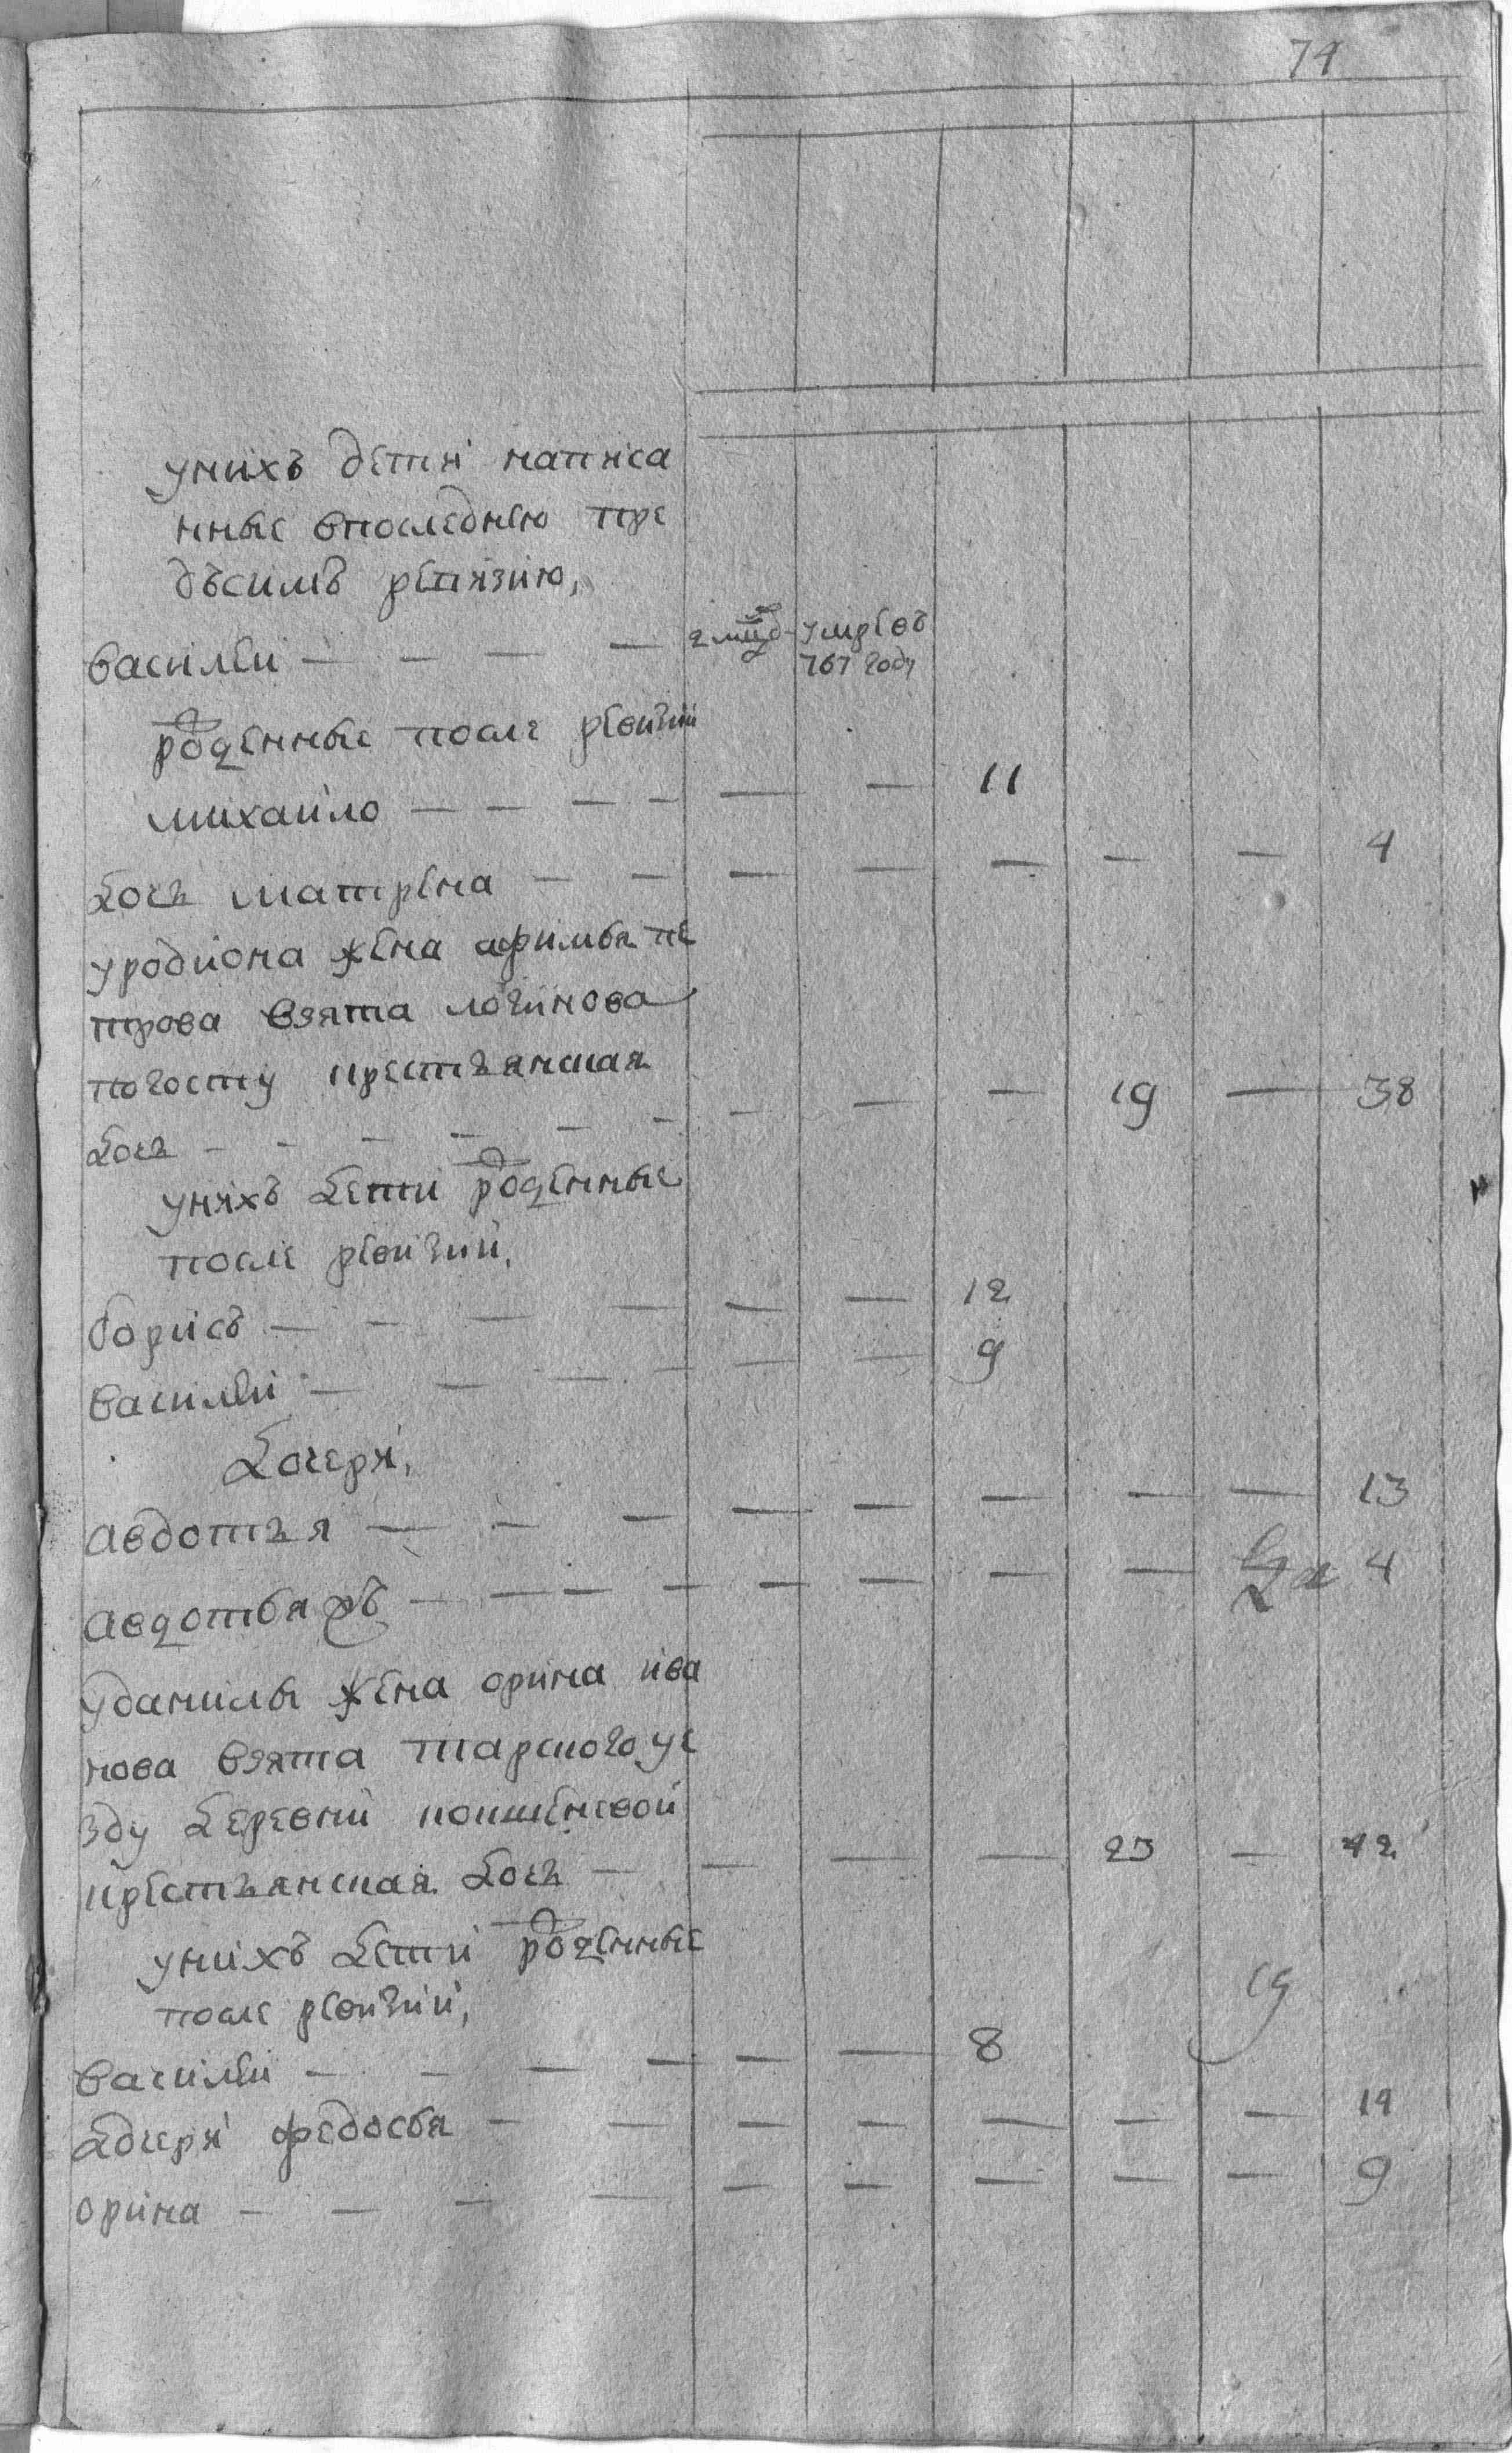 74
у нихъ дети написа
нные в последнею пре
дъ симъ ревизию,
василеи — — — — умре въ
767 году
роденные после ревизии
михаило — — — — — — 11
дочь матрена — — — — — — — 4
у родиона жена афимья пе
трова взята логинова
погосту крестьянская
дочь — — — — — — — — — 19 — 38
у нихъ дети роденные
после ревизии,
борисъ — — — — — — 12
василеи — — — — — — 9
дочери,
авдотья — — — — — — — — 13
авдотья жъ — — — — — — — — 4
у данилы жена орина ива
нова взята тарского уе
зду деревни кокшеневой
крестьянская дочь — — — — 23 — 42
у нихъ дети роденные
после ревизии,
19
василеи — — — — — — 8
дочери федосья — — — — — — — 14
орина — — — — — — — — — 9